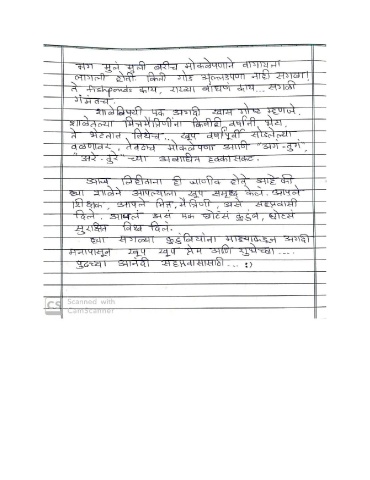 मग मुलं मुली बरीच मोकळेपणाने वागायला
लागली होती. किती गोड अल्लडपणा नाही सगळा!
ते fishponds काय, राख्या बांधणं काय... सगळी
गंमतच.
शाळेविषयी एक अगदी खास गोष्ट म्हणजे,
शाळेतल्या मित्रमैत्रिणींना कितीही वर्षांनी भेटा,
ते भेटतात तिथेच, खूप वर्षांपूर्वी सोडलेल्या
वळणावर, तेवढ्याच मोकळेपणा आणि "अगं-तुगं",
"अरे-तुरे" च्या अबाधित हक्कासकट.
आज लिहीताना ही जाणीव होते आहे की
ह्या शाळेने आपल्याला खूप समृद्ध केलं. आपले
शिक्षक, आपले मित्र, मैत्रिणी, असे सहप्रवासी
दिले. आपलं असं एक छोटंसं कुटुंब, छोटंसं
सुरक्षित विश्व दिलं.
ह्या सगळ्या कुटुंबियांना माझ्याकडून अगदी
मनापासून खूप खूप प्रेम आणि शुभेच्छा....
पुढच्या आनंदी सहप्रवासासाठी... :)
CS Scanned with
CamScanner